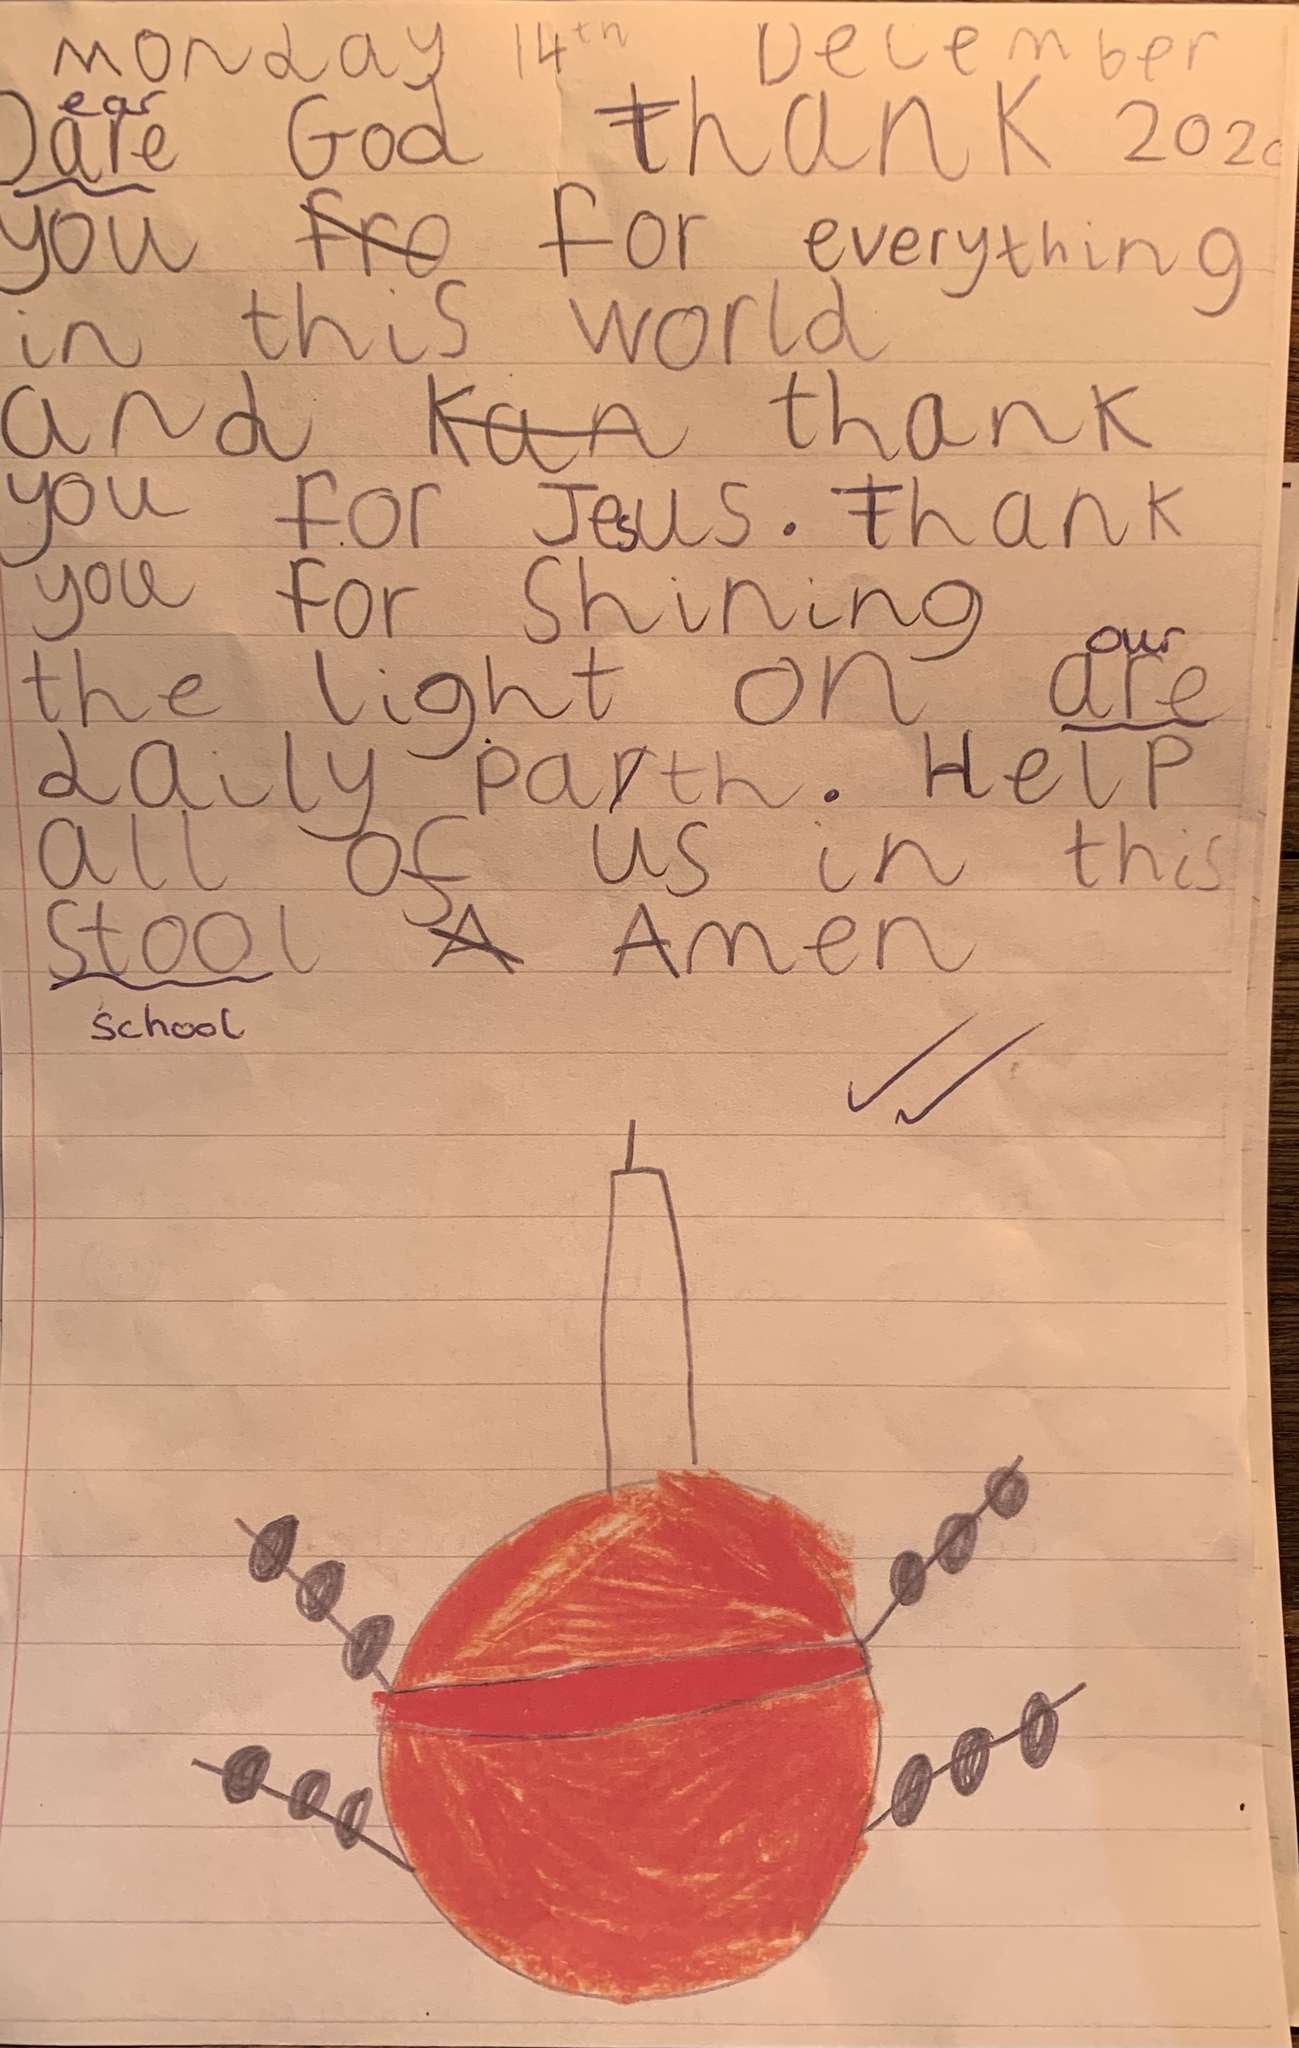 Monday 14th December
ear
Dare God Thank 2020
you fro for everything
in this world
and Kan thank
you for Jesus. Thank
you for Shining
our
the light on are
daily parth. Help
all of us in this
Stool A Amen
school